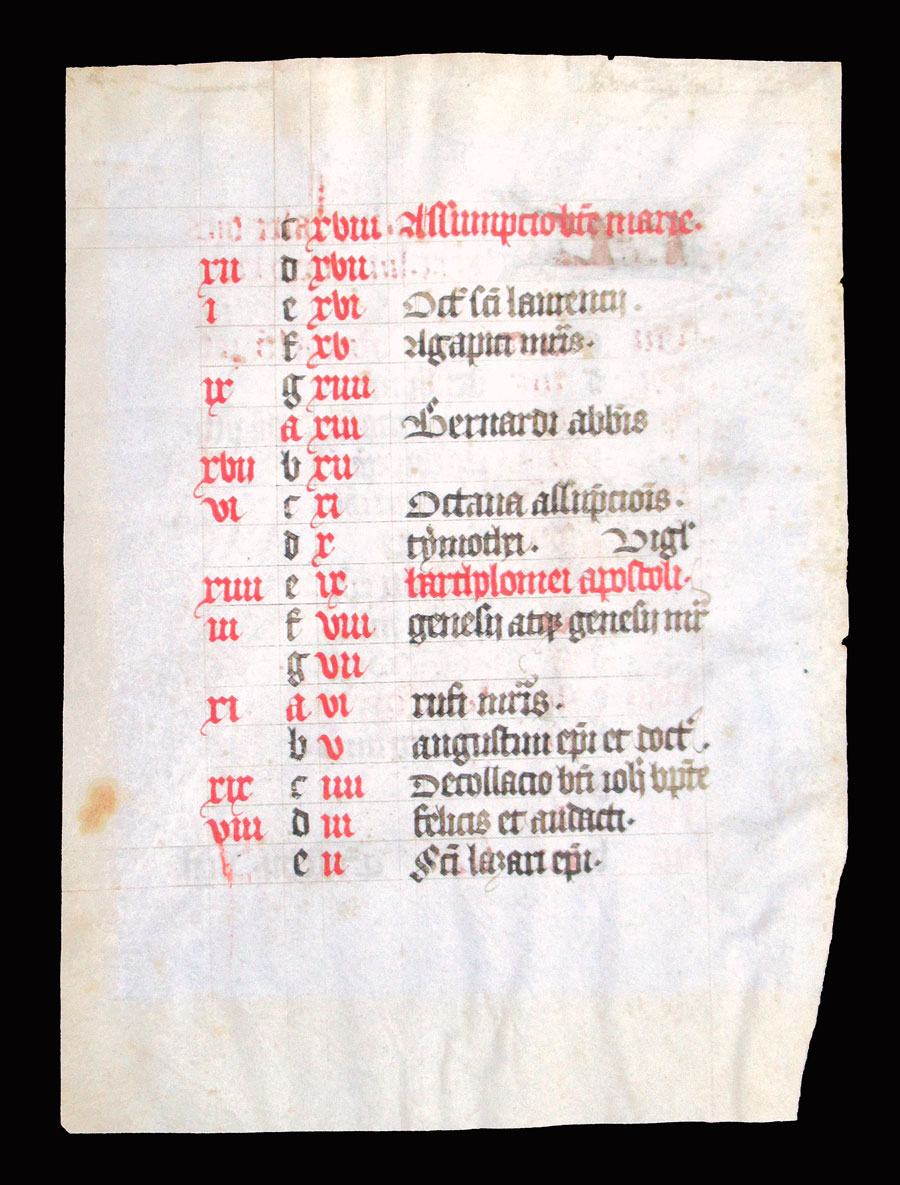 c xviii Assumpcio bte marie.
xii d xvii
i e xvi Oct sci laurencij.
f xv Agapiti mris.
ix g xiiii
a xiii Bernardi abbis
xvii b xii
vi c xi Octaua assupciois.
d x tymothei. Vigl
xiiii e ix bartholomei apostoli.
iii f viii genesij atq genesij mr
g vii
xi a vi rufi mris.
b v augustini epi et doct.
xix c iiii Decollacio bti iohis bpte
viii d iii felicis et audacti.
e ii Sci lazari epi.